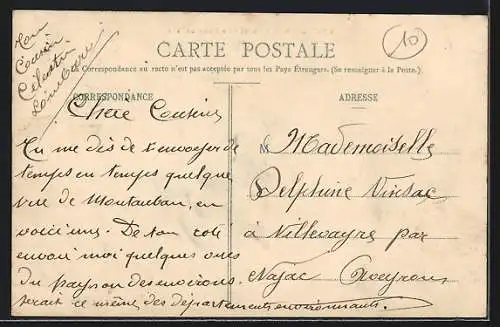 Ton
Cousin
Celestin
10
CARTE POSTALE
La Correspondance au recto n'est pas acceptée par tous les Pays Étrangers. (Se renseigner à la Poste.)
CORRESPONDANCE
Chère Cousine
Tu me dis de t'envoyer de
temps en temps quelque
vue de Montauban, en
voici une. De ton coté
envoi moi quelques unes
du pays ou des environs.
serait ce même des départements environnants.
ADRESSE
M Mademoiselle
Delphine
à Villevayre par
Najac Aveyron